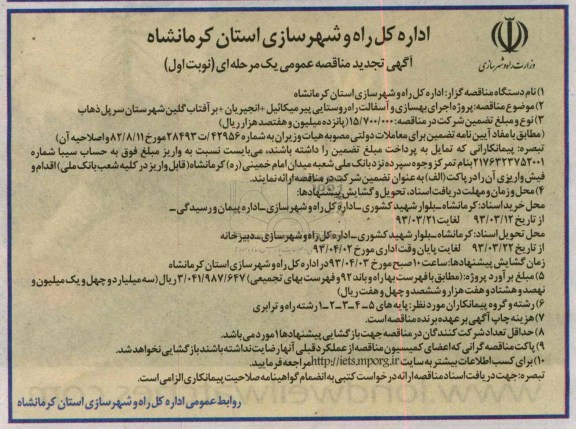 اداره کل راه و شهرسازی استان کرمانشاه
وزارت راه و شهرسازی
آگهی تجدید مناقصه عمومی یک مرحله ای (نوبت اول)
۱) نام دستگاه مناقصه گزار: اداره کل راه و شهرسازی استان کرمانشاه
۲) موضوع مناقصه: پروژه اجرای بهسازی و آسفالت راه روستایی پیر میکائیل + انجیریان + بر آفتاب گلین شهرستان سرپل ذهاب
۳) نوع و مبلغ تضمین شرکت در مناقصه: ۱۵/۷۰۰/۰۰۰ (پانزده میلیون و هفتصد هزار ریال)
(مطابق با مفاد آیین نامه تضمین برای معاملات دولتی مصوبه هیات وزیران به شماره ۴۲۹۵۶/ت ۲۸۴۹۳ مورخ ۸۲/۸/۱۱ و اصلاحیه آن)
تبصره: پیمانکارانی که تمایل به پرداخت مبلغ تضمین را داشته باشند، می‌بایست نسبت به واریز مبلغ فوق به حساب سیبا شماره
۲۱۷۶۳۲۳۷۵۲۰۰۱ بنام تمرکز وجوه سپرده نزد بانک ملی شعبه میدان امام خمینی (ره) کرمانشاه (قابل واریز در کلیه شعب بانک ملی) اقدام و
فیش واریزی آن را در پاکت (الف) به عنوان تضمین شرکت در مناقصه ارائه نمایند.
۴) محل و زمان و مهلت دریافت اسناد، تحویل و گشایش پیشنهادها:
محل خرید اسناد: کرمانشاه ـ بلوار شهید کشوری ـ اداره کل راه و شهرسازی ـ اداره پیمان و رسیدگی ـ
از تاریخ ۹۳/۰۳/۱۲ لغایت ۹۳/۰۳/۲۱
محل تحویل اسناد: کرمانشاه ـ بلوار شهید کشوری ـ اداره کل راه و شهرسازی ـ دبیرخانه
از تاریخ ۹۳/۰۳/۲۲ لغایت پایان وقت اداری مورخ ۹۳/۰۴/۰۲
زمان گشایش پیشنهادها: ساعت ۱۰ صبح مورخ ۹۳/۰۴/۰۳ در اداره کل راه و شهرسازی استان کرمانشاه
۵) مبلغ برآورد پروژه: (مطابق با فهرست بها راه و باند ۹۲ و فهرست بهای تجمیعی) ۳/۰۴۱/۹۸۷/۶۴۷ ریال (سه میلیارد و چهل و یک میلیون و
نهصد و هشتاد و هفت هزار و ششصد و چهل و هفت ریال)
۶) رشته و گروه پیمانکاران مورد نظر: پایه های ۵-۴-۳-۲-۱ رشته راه و ترابری
۷) هزینه چاپ آگهی بر عهده برنده مناقصه است.
۸) حداقل تعداد شرکت کنندگان در مناقصه جهت بازگشایی پیشنهادها ۱ مورد می باشد.
۹) پاکت مناقصه گرانی که اعضای کمیسیون مناقصه از عملکرد قبلی آنها رضایت نداشته باشند بازگشایی نخواهد شد.
۱۰) برای کسب اطلاعات بیشتر به سایت http://iets.mporg.ir مراجعه فرمایید.
تبصره: جهت دریافت اسناد مناقصه ارائه درخواست کتبی به انضمام گواهینامه صلاحیت پیمانکاری الزامی است.
روابط عمومی اداره کل راه و شهرسازی استان کرمانشاه